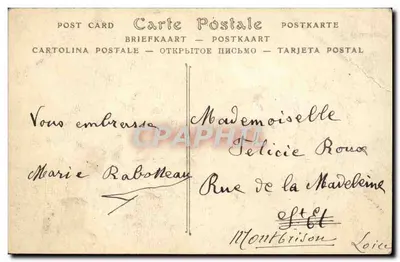 POST CARD Carte Postale POSTKARTE
BRIEFKAART — POSTKAART
CARTOLINA POSTALE — ОТКРЫТОЕ ПИСЬМО — TARJETA POSTAL
Vous embrasse
Marie Rabotteau
Mademoiselle
Félicie Roux
Rue de la Madeleine
Montbrison
Loire
CPAPHIL